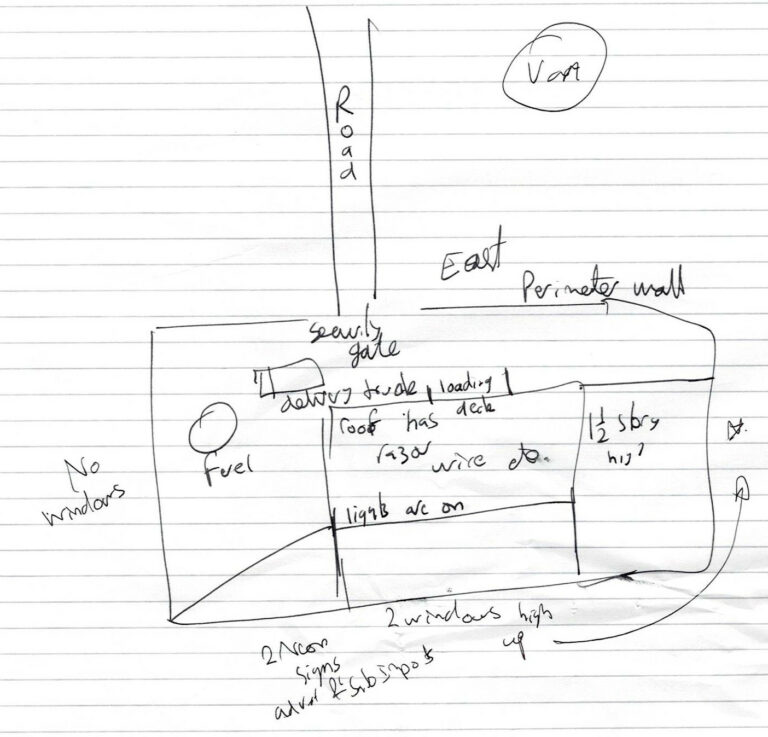 Road
East
Perimeter wall
security
gate
delivery truck
loading
deck
roof has
razor
wire
1 1/2 story
high
Fuel
No
windows
lights are on
2 windows high
up
2 Neon
signs